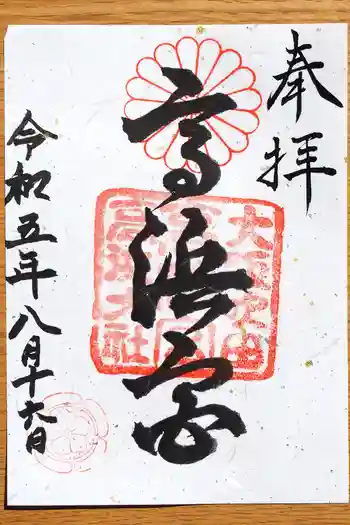 奉拝
高濱宮
令和五年八月十六日